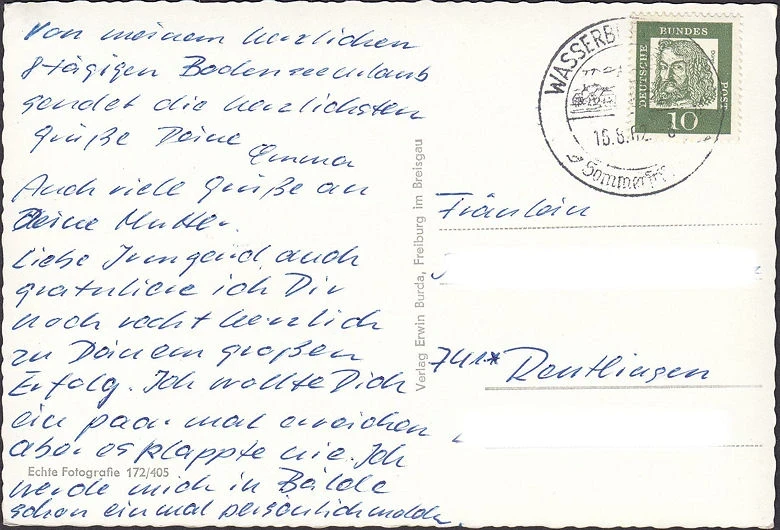 Von meinem herzlichen
8tägigen Bodenseeurlaub
sendet die herzlichsten
Grüße Deine
Emma
Auch viele Grüße an
Deine Mutter.
Liebe Irmgard auch
gratuliere ich Dir
noch recht herzlich
zu Deinem großen
Erfolg. Ich wollte Dich
ein paar mal erreichen
aber es klappte nie. Ich
werde mich in Bälde
schon einmal persönlich melden.
Echte Fotografie 172/405
Verlag Erwin Burda, Freiburg im Breisgau
WASSERBU
15.8.
Sommerfr
DEUTSCHE BUNDES POST
10
Fräulein
741* Reutlingen